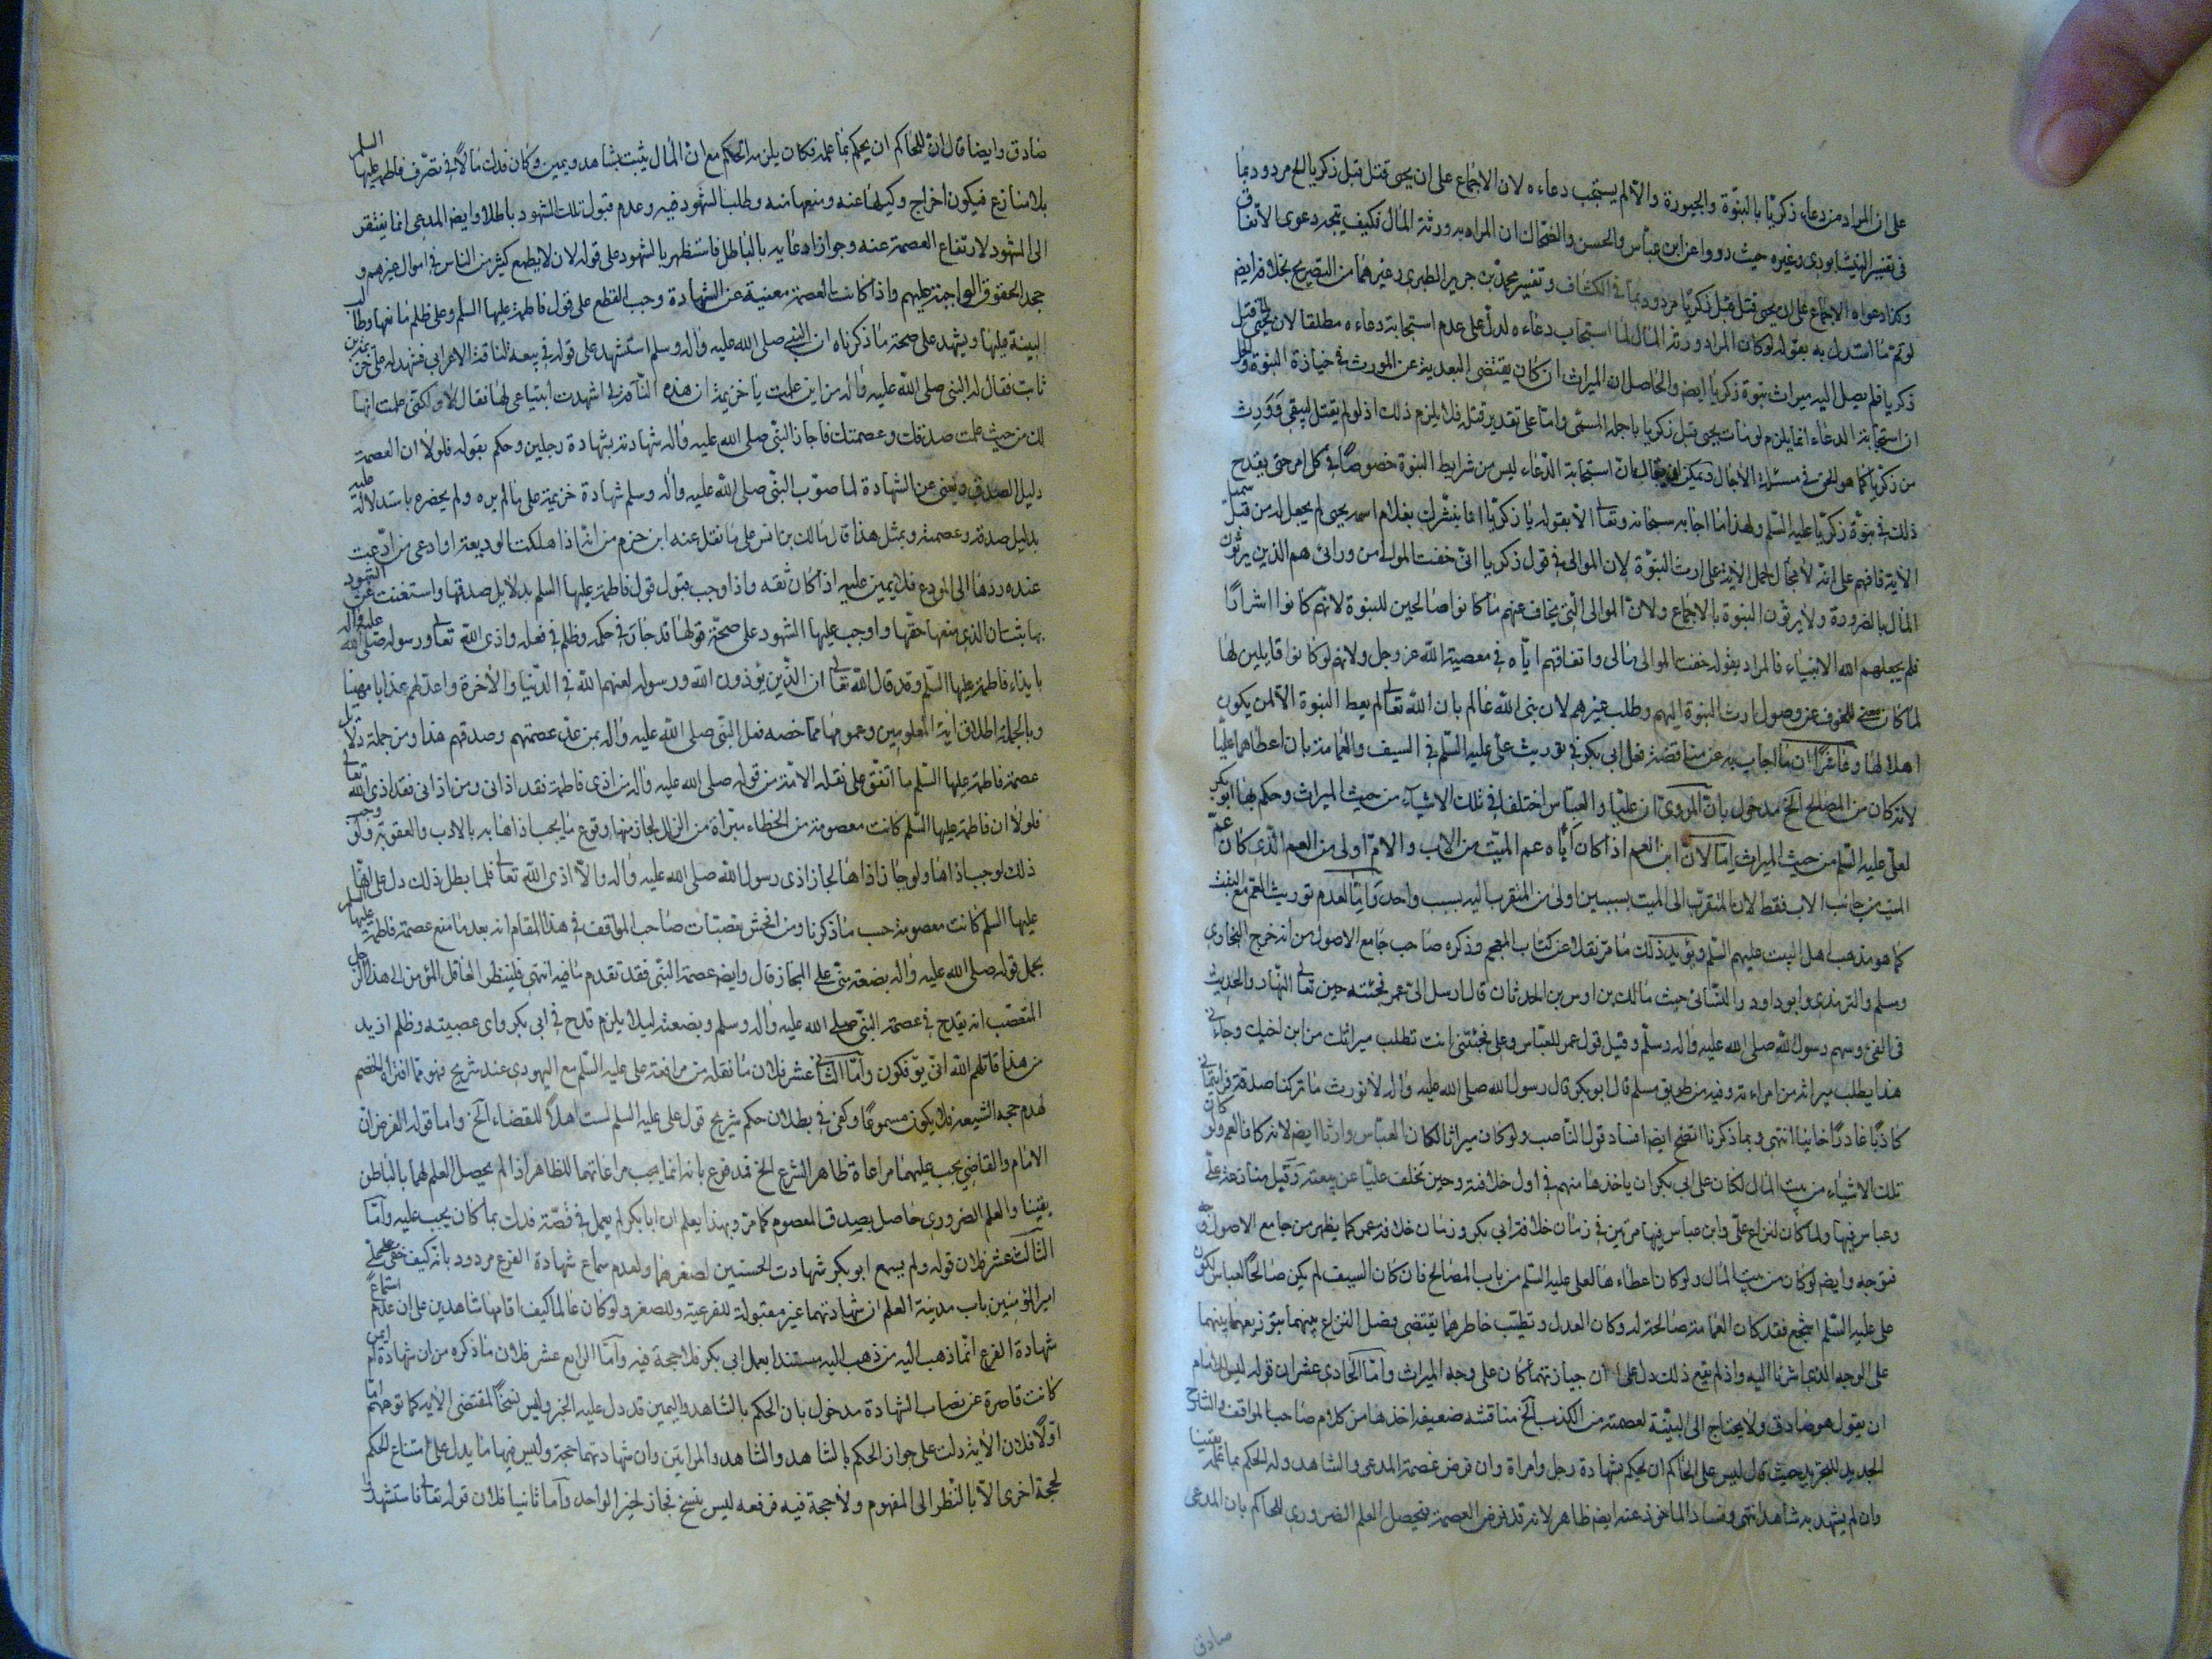 على ان المراد من دعاء زكريا بالنبوة والحبورة والا لم يستجب دعاءه لان الاجماع على ان يحيى قتل قبل زكريا الخ مردود بما
فى تفسير النيشابورى وغيره حيث رووا عن ابن عباس والحسن والضحاك ان المراد به ورثة المال فكيف يتجه دعوى الاتفاق
وكذا دعواه الاجماع على ان يحيى قتل قبل زكريا مردود بما فى الكشاف وتفسير محمد بن جرير الطبرى وغيرهما من التصريح بخلافه ايضا
لو تم ما استدل به بقوله لو كان المراد ورثة المال لما استجاب دعاءه لدل على عدم استجابة دعاءه مطلقا لان يحيى قتل
زكريا فلم يصل اليه ميراث نبوة زكريا ايضا والحاصل ان الميراث ان كان يقتضى البعدية عن المورث فى حيازة النبوة والحل
ان استجابة الدعاء انما يلزم لو مات يحيى قبل زكريا باجله المسمى واما على تقدير قتله فلا يلزم ذلك اذ لو لم يقتل لبقى وورث
من زكريا كما هو الحق فى مسئلة الاجال ويمكن ان يقال ان استجابة الدعاء ليس من شرايط النبوة خصوصا فى كل امر حتى يقدح
ذلك فى نبوة زكريا عليه السلم ولهذا ما اجابه سبحانه وتعالى الا بقوله يا زكريا انا نبشرك بغلام اسمه يحيى لم يجعل له من قبل سميا
الاية فافهم على انه لا مجال لحمل الاية على ارث النبوة لان الموالى فى قول زكريا انى خفت الموالى من ورائى هم الذين يرثون
المال بالضرورة ولا يرثون النبوة بالاجماع ولان الموالى التى يخاف عنهم ما كانوا صالحين للنبوة لانهم كانوا اشرارا
فلم يجعلهم الله الانبياء فالمراد بقوله خفت الموالى مالى وانفاقهم اياه فى معصية الله عز وجل ولانهم لو كانوا قابلين لها
لما كان معنى للخوف عن وصول ارث النبوة اليهم وطلب غيرهم لان نبى الله عالم بان الله تعالى لم يعط النبوة الا لمن يكون
اهلا لها وعاشرا ان ما اجاب به عن مناقضة فعل ابى بكر فى توريث على عليه السلم فى السيف والعمامة بان اعطاهما عليا
لانه كان من المصالح الخ مدخول بان المروى ان عليا والعباس اختلفا فى تلك الاشياء من حيث الميراث وحكم بها ابو بكر
لعلى عليه السلم من حيث الميراث اما لان ابن العم اذا كان اباه عم الميت من الاب والام اولى من العم الذى كان عم
الميت من جانب الاب فقط لان المتقرب الى الميت بسببين اولى من المتقرب اليه بسبب واحد واما لعدم توريث العم مع البنت
كما هو مذهب اهل البيت عليهم السلم ويؤيد ذلك ما مر نقلا عن كتاب المعجم وذكره صاحب جامع الاصول من انه خرج البخارى
ومسلم والترمذى وابو داود والنسائى حيث مالك بن اوس بن الحدثان قال ارسل الى عمر فجئته حين تعالى النهار والحديث
فى الفئ وسهم رسول الله صلى الله عليه واله وسلم وقيل قول عمر للعباس وعلى فجئتنى انت تطلب ميراثك من ابن اخيك وجاءنى
هذا يطلب ميراثه من امراءته وفيه من طريق مسلم قال ابو بكر قال رسول الله صلى الله عليه واله لا نورث ما تركنا صدقة فرايتمانى
كاذبا غادرا خائنا انتهى وبما ذكرنا اتضح ايضا فساد قول الناصب ولو كان ميراثا لكان العباس وارثا ايضا لانه كان العم ولو كان
تلك الاشياء من بيت المال لكان على ابى بكر ان ياخذها منهم فى اول خلافته وحين تخلف عليا عن بيعته وقيل منازعة على
وعباس فيها ولما كان لنزاع على وابن عباس فيها مرتين فى زمان خلافة ابى بكر وزمان خلافة عمر كما يظهر من جامع الاصول وجه
فتوجه وايضا لو كان من بيت المال ولو كان اعطاءها لعلى عليه السلم من باب المصالح فان كان السيف لم يكن صالحا لعباس لكون
على عليه السلم اشجع فقد كان العمامة صالحة له وكان العدل وتطيب خاطرهما يقتضى فصل النزاع بينهما بتوزيعهما بينهما
على الوجه الذى اشرنا اليه واذ لم يقع ذلك دل على ان حيازتهما كان على وجه الميراث واما الحادى عشر ان قوله ليس للامام
ان يقول هو صادق ولا يحتاج الى البينة لعصمته من الكذب الخ مناقشة ضعيفة اخذها من كلام صاحب المواقف والشارح
الجديد للتجريد حيث قال ليس على الحاكم ان يحكم بشهادة رجل وامراة وان فرض عصمة المدعى والشاهد وله الحكم بما علمه يقينا
وان لم يشهد به شاهد انتهى وفساد الماخوذ عنه ايضا ظاهر لانه قد فرض العصمة فيحصل العلم الضرورى للحاكم بان المدعى
صادق
صادق وايضا قال ان للحاكم ان يحكم بما علمه فكان يلزمه الحكم مع ان المال يثبت بشاهد ويمين وكان فدك مالا فى تصرف فاطمة عليها السلم
بلا منازع فيكون اخراج وكيلها عنه ومنعها منه وطلب الشهود فيه وعدم قبول تلك الشهود باطلا وايضا المدعى انما يفتقر
الى الشهود لارتفاع العصمة عنه وجواز ادعايه بالباطل فاستظهر بالشهود على قوله لان لا يطمع كثير من الناس فى اموال غيرهم و
جحد الحقوق الواجبة عليهم واذا كانت العصمة مغنية عن الشهادة وجب القطع على قول فاطمة عليها السلم وعلى ظلم مانعها وطالب
البينة عليها ويشهد على صحة ما ذكرناه ان النبى صلى الله عليه واله وسلم استشهد على قوله فى بيعة الناقة الاعرابى فشهد له خزيمة بن
ثابت فقال له النبى صلى الله عليه واله من اين علمت يا خزيمة ان هذه الناقة لى اشهدت ابتياعى لها فقال لا ولكنى علمت انها
لك من حيث علمت صدقك وعصمتك فاجاز النبى صلى الله عليه واله شهادته بشهادة رجلين وحكم بقوله فلولا ان العصمة
دليل الصدق ويغنى عن الشهادة لما صوب النبى صلى الله عليه واله وسلم شهادة خزيمة على ما لم يره ولم يحضره باستدلاله عليه
بدليل صدقه وعصمته وبمثل هذا قال مالك بن انس على ما نقل عنه ابن حزم من انه اذا هلكت الوديعة او ادعى من ادعيت
عنده ردها الى المودع فلا يمين عليه اذا كان ثقة واذا وجب قبول قول فاطمة عليها السلم بدلايل صدقها واستغنت عن الشهود
بها ثبت ان الذى منعها حقها واوجب عليها الشهود على صحة قولها قد جار فى حكمه وظلم فى فعله واذى الله تعالى ورسوله صلى الله عليه واله
بايذاء فاطمة عليها السلم وقد قال الله تعالى ان الذين يؤذون الله ورسوله لعنهم الله فى الدنيا والاخرة واعد لهم عذابا مهينا
وبالجملة اطلاق اية المعلومين وعمومها مما خصه فعل النبى صلى الله عليه واله بمن علم عصمتهم وصدقهم هذا ومن جملة دلايل
عصمة فاطمة عليها السلم ما اتفق على نقله الامة من قوله صلى الله عليه واله من اذى فاطمة فقد اذانى ومن اذانى فقد اذى الله تعالى
فلولا ان فاطمة عليها السلم كانت معصومة من الخطاء مبراة من الزلل لجاز منها وقوع ما يجب اذاها به بالادب والعقوبة ولو وجب
ذلك لوجب اذاها ولو جاز اذاها لجاز اذى رسول الله صلى الله عليه واله والا اذى الله تعالى فلما بطل ذلك دل على انها
عليها السلم كانت معصومة حسب ما ذكرنا ومن افحش تعصبات صاحب المواقف فى هذا المقام انه بعد ما منع عصمة فاطمة عليها السلم
بحمل قوله صلى الله عليه واله بضعة منى على المجاز قال وايضا عصمة النبى فقد تقدم ما فيه انتهى فلينظر العاقل المؤمن الى هذا الرجل
المتعصب انه يقدح فى عصمة النبى صلى الله عليه واله وسلم وبضعته ليلا يلزم قدح فى ابى بكر واى عصبية وظلم ازيد
من هذا قاتلهم الله انى يؤفكون واما الثانى عشر فلان ما نقله من مرافعة على عليه السلم مع اليهودى عند شريح فهو مما افتراه الخصم
لهدم حجة الشيعة فلا يكون مسموعا وكفى فى بطلان حكم شريح قول على عليه السلم لست اهلا للقضاء الخ واما قوله الغرض ان
الامام والقاضى يجب عليهما مراعاة ظاهر الشرع الخ فمدفوع بانه انما يجب مراعاتهما للظاهر اذا لم يحصل العلم لهما بالباطن
يقينا والعلم الضرورى حاصل بصدق المعصوم كما مر وبهذا يعلم ان ابا بكر لم يعمل فى قصة فدك بما كان يجب عليه واما
الثالث عشر فلان قوله ولم يسمع ابو بكر شهادت الحسنين لصغرهما ولعدم سماع شهادة الفرع مردود بانه كيف خفى على
امير المؤمنين باب مدينة العلم ان شهادتهما غير مقبولة للفرعية وللصغر ولو كان عالما كيف اقامهما شاهدين على ان عدم استماع
شهادة الفرع انما ذهب اليه من ذهب اليه مستندا بعمل ابى بكر فلا حجة فيه واما الرابع عشر فلان ما ذكره من ان شهادة ام ايمن
كانت قاصرة عن نصاب الشهادة مدخول بان الحكم بالشاهد واليمين قد دل عليه الخبر وليس نسخا لمقتضى الاية كما توهم اما
اولا فلان الاية دلت على جواز الحكم بالشاهد والشاهد والمراتين وان شهادتهما حجة وليس فيها ما يدل على امتناع الحكم
لحجة اخرى الا بالنظر الى المفهوم ولا حجة فيه فرفعه ليس بنسخ فجاز لخبر الواحد واما ثانيا فلان قوله تعالى فاستشهدوا